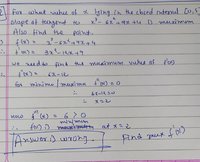 For what value of x lying in the closed interval [0,5]
slope of tangent to x³ - 6x² + 9x + 4 is maximum
Also find the point.
f(x) = x³ - 6x² + 9x + 4
f'(x) = 3x² - 12x + 9
we need to find the maximum value of f'(x)
f''(x) = 6x - 12
for minima/maxima f''(x) = 0
6x - 12 = 0
x = 2
now f'''(x) = 6 > 0
minimum
f'(x) is at x = 2
Answer is wrong. Find just f'(x)